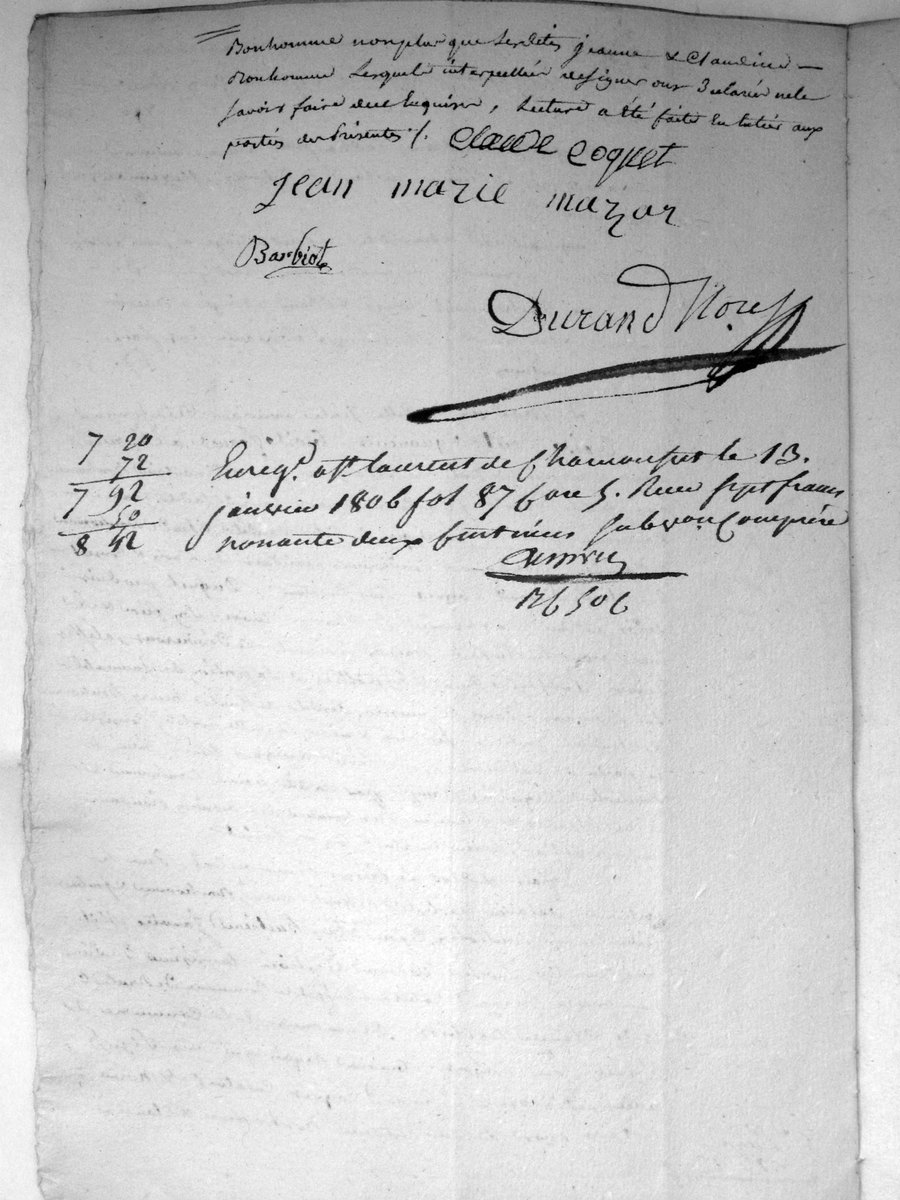 Bonhomme nonplus que lesdites jeanne & Claudine
Bonhomme lesquels interpellées de signer ont declaré ne le
savoir faire de ce Enquises, Lecture a été faite en entier aux
parties des présentes /. Claude Coquet
jean marie mazar
Barbiot
Durand Nore
7 20
72
7 92
50
8 42
Enreg. a St laurent de Chamousset le 13.
janvier 1806 fol 87 Recu sept francs
nonante deux centimes Subvon Comprise